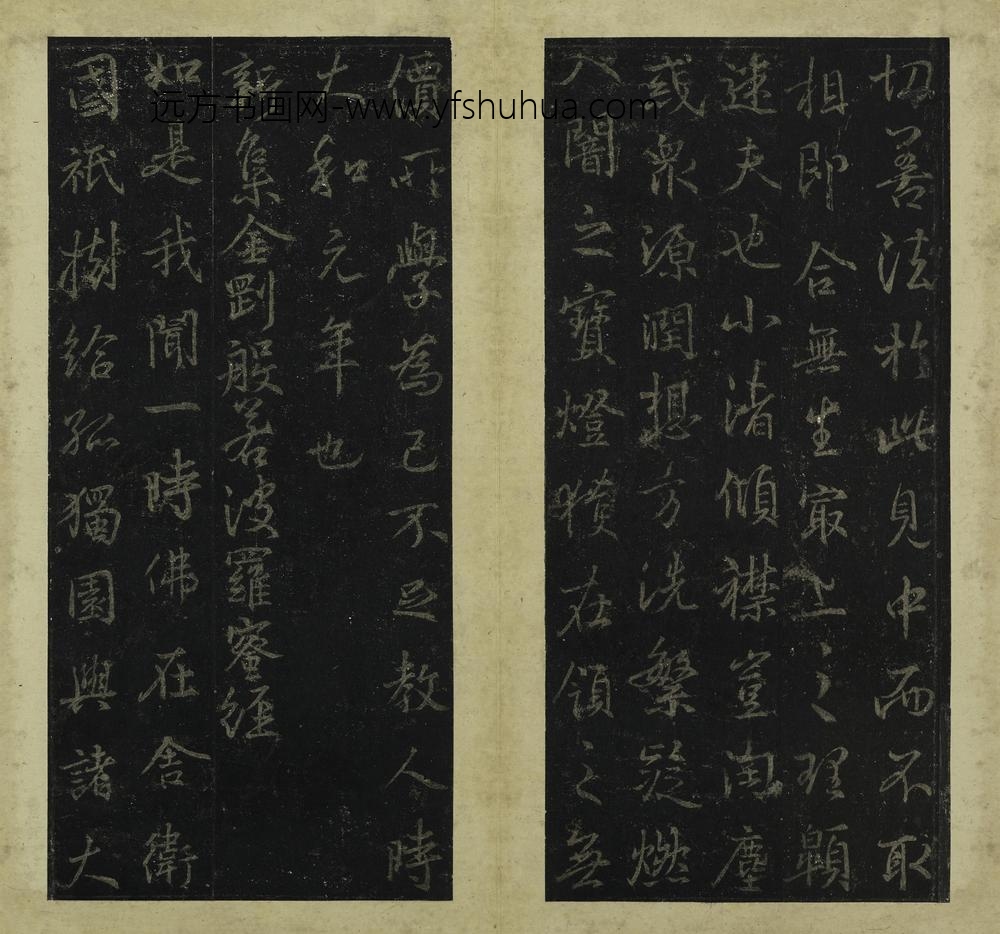 切善法於此見中而不取
相即合無生最上之理顯
速夫也小渚傾襟豈陶塵
或眾源潤想方洗繁疑燃
入闇之寶燈獲在領之無
價所學為己不足教人時
大和元年也
新集金剛般若波羅蜜經
如是我聞一時佛在舍衛
國祇樹給孤獨園與諸大
远方书画网-www.yfshuhua.com